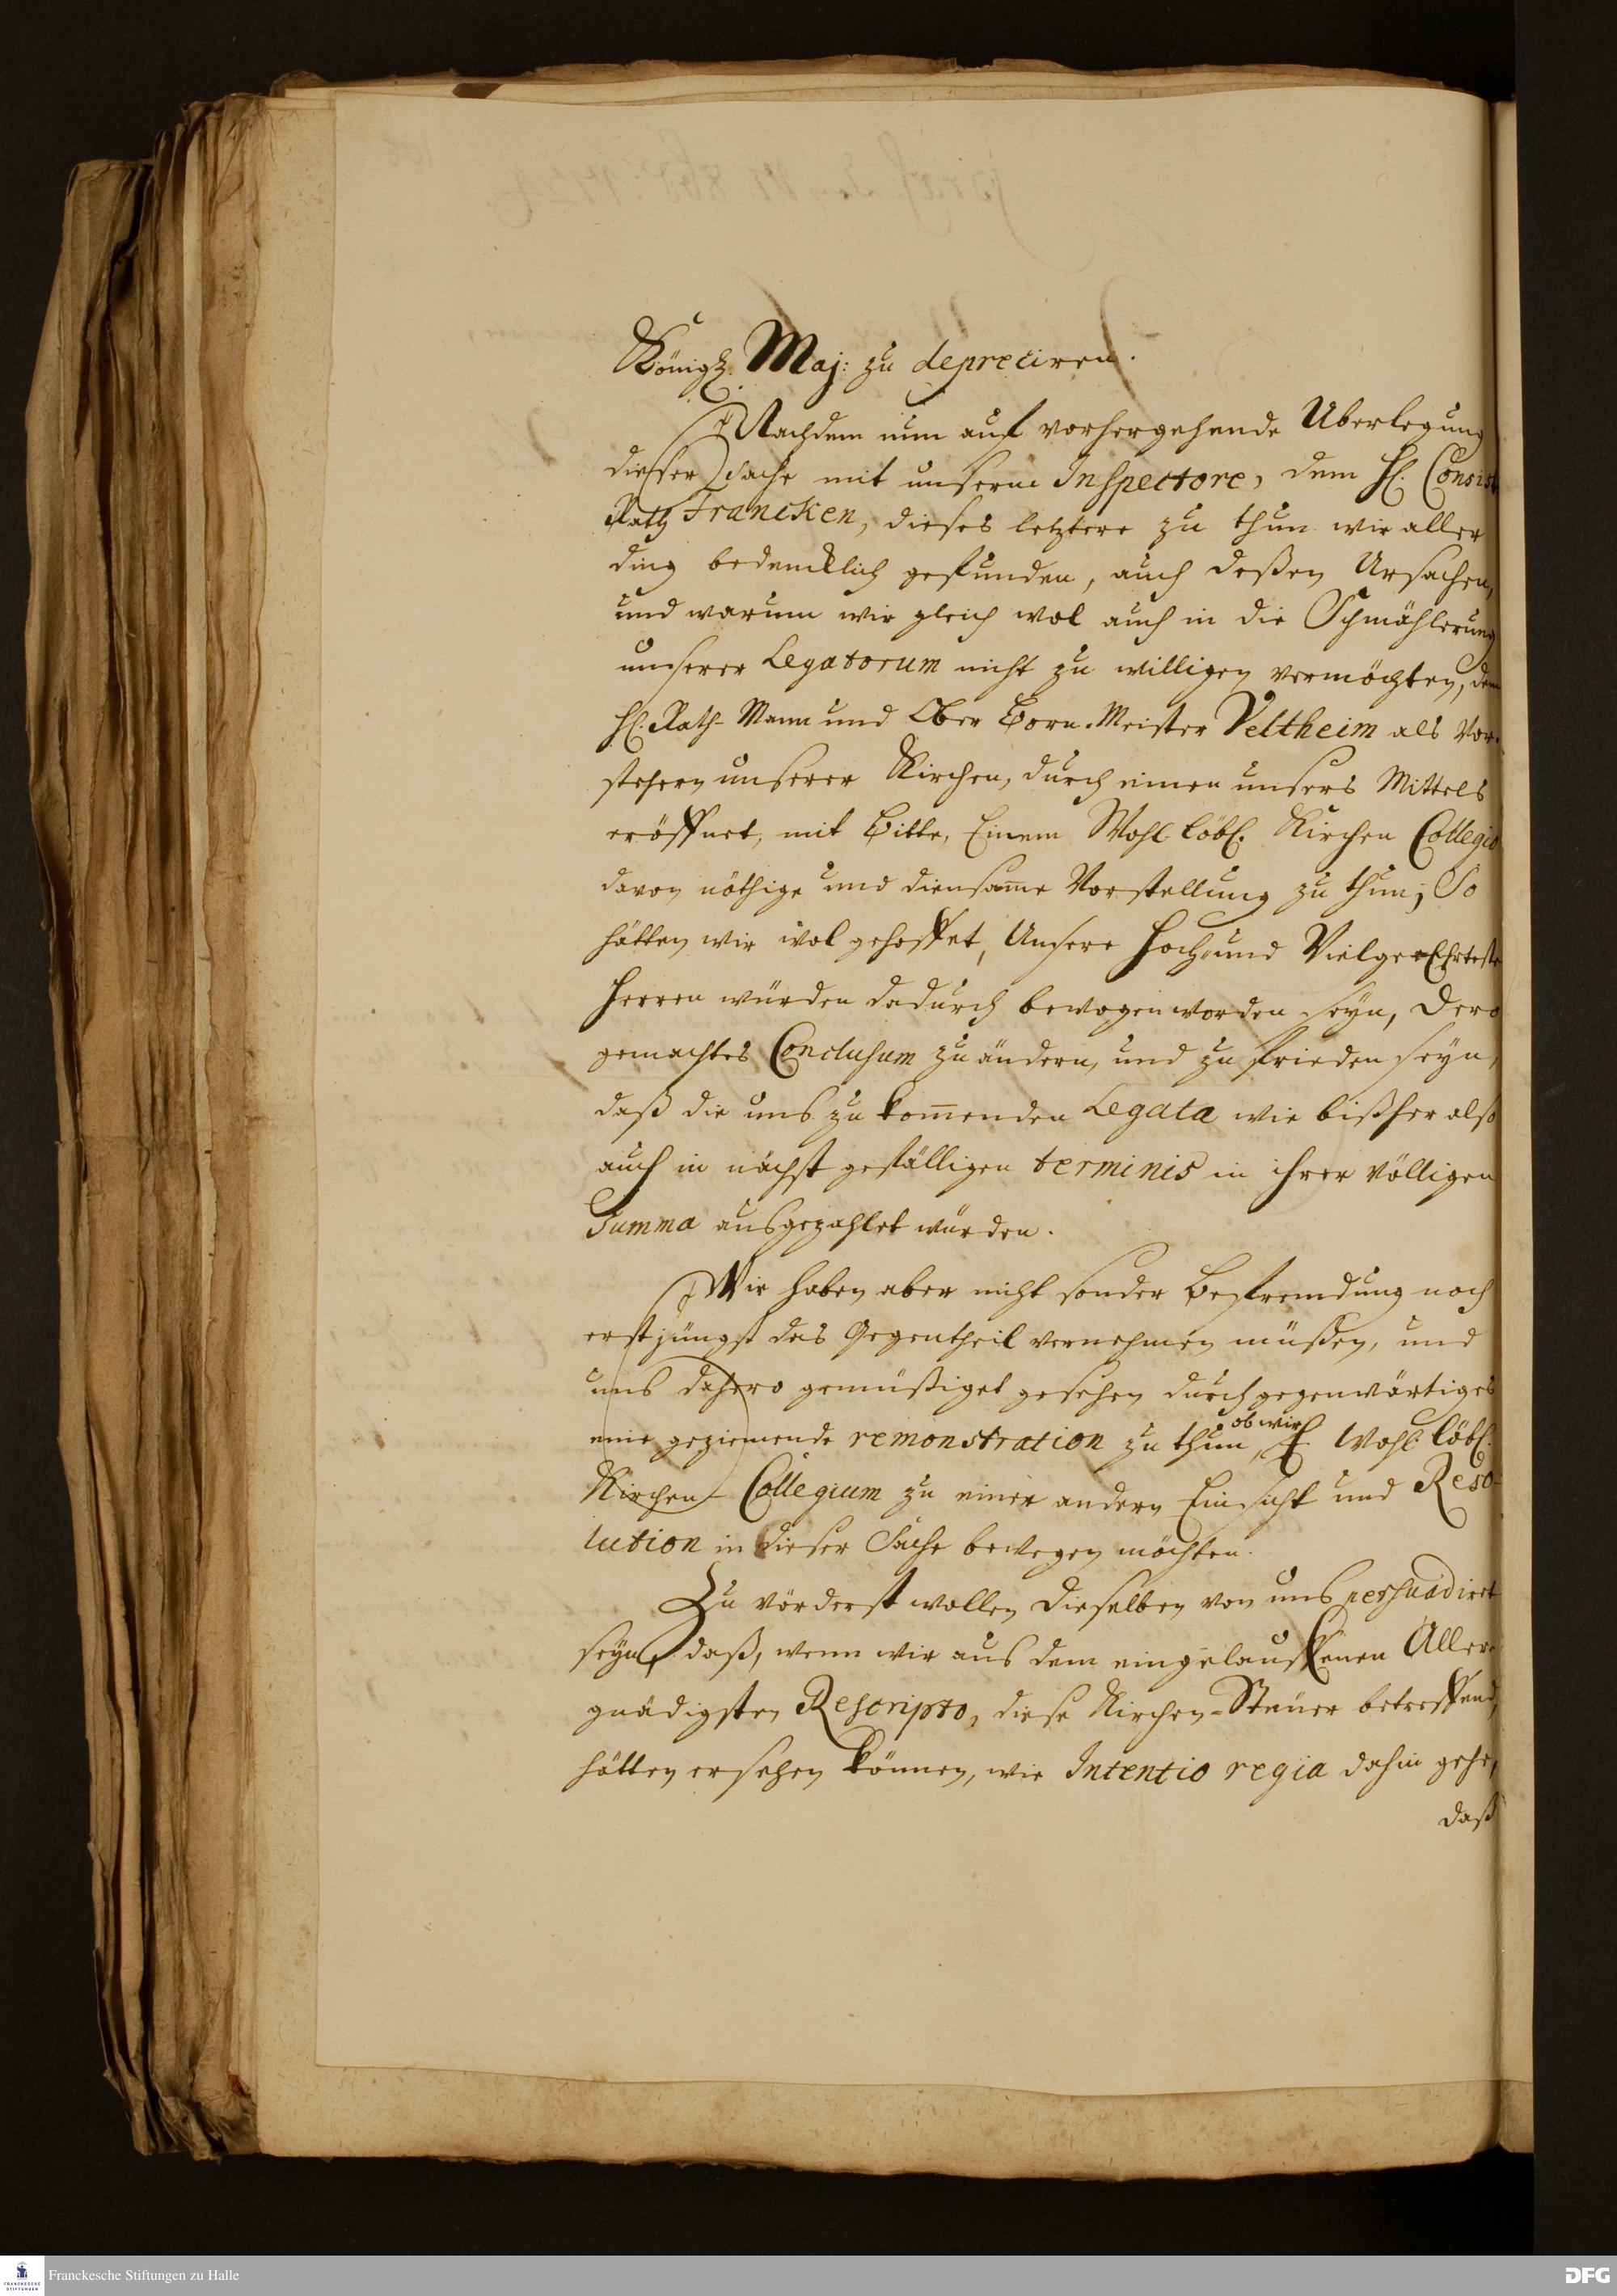 Königl. Maj: zu depreciren.
Nachdem nun auf vorhergehende Uberlegung
dieser Sache mit unserm Inspectore, dem H. Consist
Rath Francken, dieses letztere zu thun wir aller
ding bedencklich gefunden, auch deßen Ursachen,
und warum wir gleich wol auch in die Schmählerung
unserer Legatorum nicht zu willigen vermöchten, dem
H. Rath-Mann und Ober Born-Meister Veltheim als Vor-
stehern unserer Kirchen, durch einen unsers Mittels
eröffnet, mit Bitte, Einem Wohl löbl. Kirchen Collegio
davon nöthige und diensame Vorstellung zu thun; So
hätten wir wol gehoffet, Unsere Hoch- und Vielgeehrteste
Herren würden dadurch bewogen worden seyn, Dero
gemachtes Conclusum zu ändern, und zu frieden seyn,
daß die uns zu kommenden Legata wie bißher also
auch in nächst gefälligen terminis in ihrer völligen
Summa ausgezahlet würden.
Wir haben aber nicht sonder Befremdung noch
erst jüngst das Gegentheil vernehmen müßen, und
uns dahero gemüßiget gesehen durch gegenwärtiges
eine geziemende remonstration zu thun, ob wir E. Wohl löbl.
Kirchen-Collegium zu einer andern Einsicht und Reso-
lution in dieser Sache bewegen möchten.
Zu vörderst wollen dieselben von uns persuadiret
seyn, daß, wenn wir aus dem eingelauffenen Aller-
gnädigsten Rescripto, diese Kirchen-Steuer betreffend,
hätten ersehen können, wie Intentio regia dahin gehe,
daß
Franckesche Stiftungen zu Halle
DFG